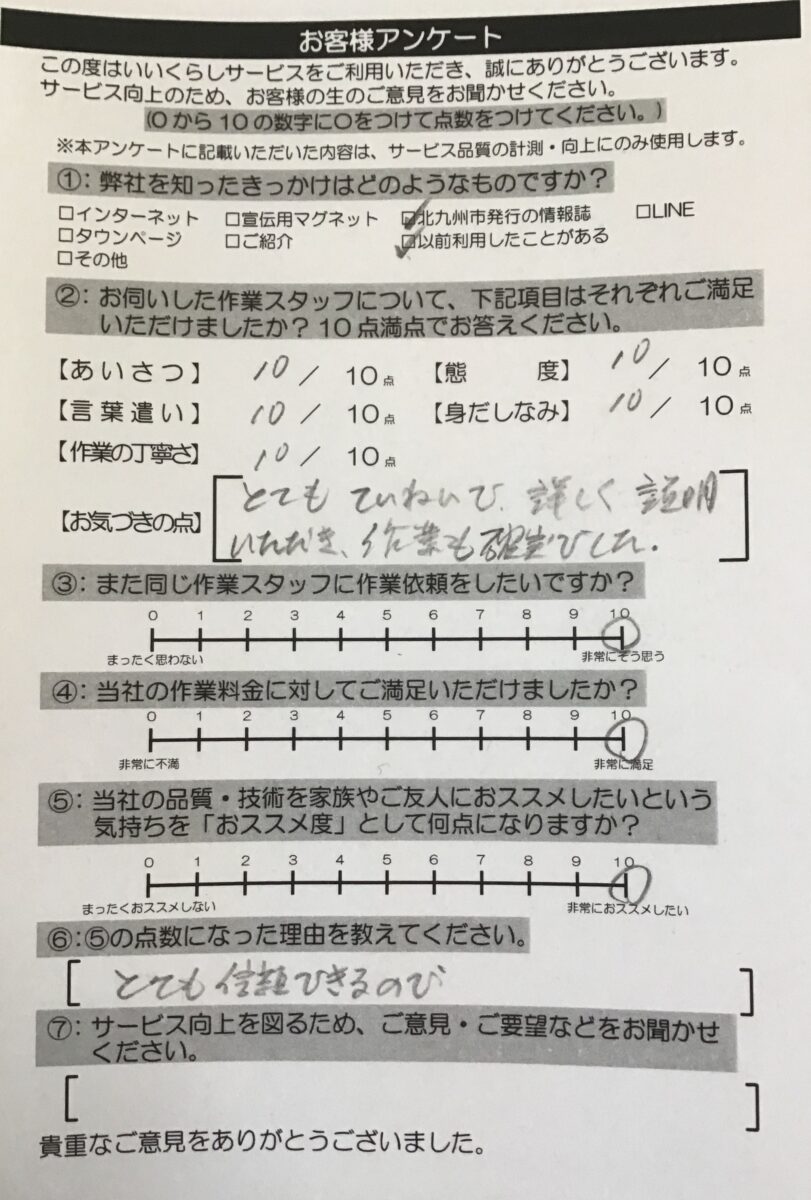 お客様アンケート
この度はいいくらしサービスをご利用いただき、誠にありがとうございます。
サービス向上のため、お客様の生のご意見をお聞かせください。
(0から10の数字に○をつけて点数をつけてください。)
※本アンケートに記載いただいた内容は、サービス品質の計測・向上にのみ使用します。
①：弊社を知ったきっかけはどのようなものですか？
□インターネット □宣伝用マグネット □北九州市発行の情報誌 □LINE
□タウンページ □ご紹介 □以前利用したことがある
□その他
②：お伺いした作業スタッフについて、下記項目はそれぞれご満足
いただけましたか？10点満点でお答えください。
【あいさつ】 10 / 10点 【態度】 10 / 10点
【言葉遣い】 10 / 10点 【身だしなみ】 10 / 10点
【作業の丁寧さ】 10 / 10点
【お気づきの点】 とても ていねいで、詳しく 説明
いただき、作業も確実でした。
③：また同じ作業スタッフに作業依頼をしたいですか？
0 1 2 3 4 5 6 7 8 9 10
まったく思わない 非常にそう思う
④：当社の作業料金に対してご満足いただけましたか？
0 1 2 3 4 5 6 7 8 9 10
非常に不満 非常に満足
⑤：当社の品質・技術を家族やご友人におススメしたいという
気持ちを「おススメ度」として何点になりますか？
0 1 2 3 4 5 6 7 8 9 10
まったくおススメしない 非常におススメしたい
⑥：⑤の点数になった理由を教えてください。
[ とても信頼できるので ]
⑦：サービス向上を図るため、ご意見・ご要望などをお聞かせ
ください。
[ ]
貴重なご意見をありがとうございました。